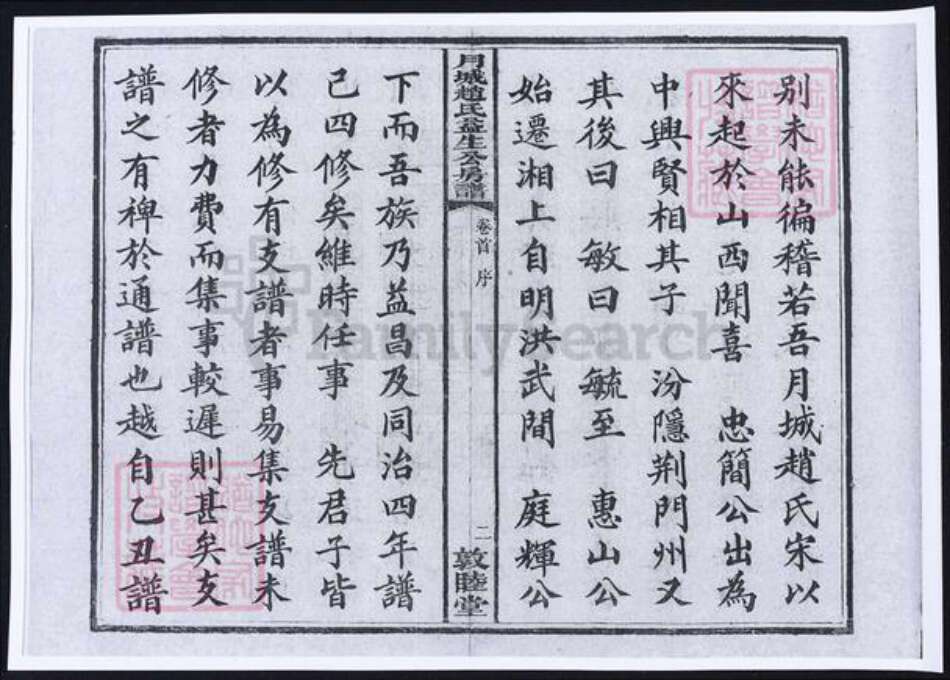 别未能徧稽若吾月城趙氏宋以
來起於山西聞喜 忠簡公出為
中興賢相其子 汾隱荆門州又
其後曰 敏曰 毓至 惠山公
始遷湘上自明洪武間 庭輝公
月城趙氏益生公房譜
卷首 序
二
敦睦堂
下而吾族乃益昌及同治四年譜
己四修矣維時任事 先君子皆
以為修有支譜者事易集支譜未
修者力費而集事較遲則甚矣支
譜之有稗於通譜也越自乙丑譜
FamilySearch